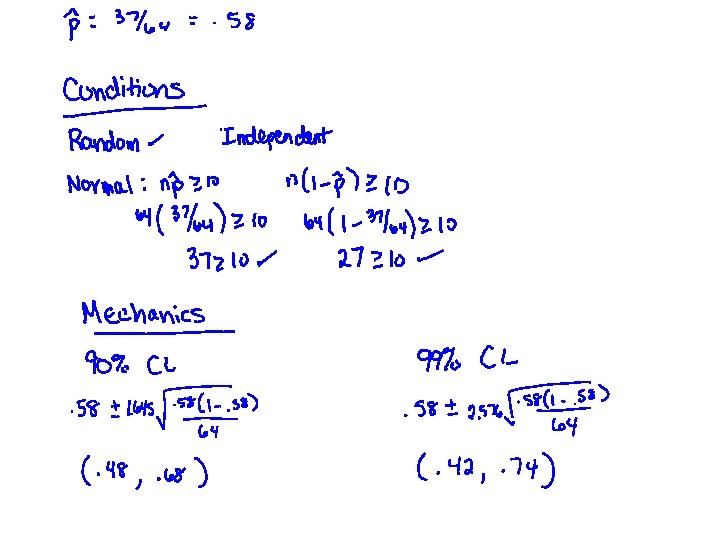 p̂ = 37/64 = .58
Conditions
Random ✓ Independent
Normal: np̂ ≥ 10 n(1-p̂) ≥ 10
64(37/64) ≥ 10 64(1-37/64) ≥ 10
37 ≥ 10 ✓ 27 ≥ 10 ✓
Mechanics
90% CL 99% CL
.58 ± 1.645√(.58(1-.58)/64) .58 ± 2.576√(.58(1-.58)/64)
(.48, .68) (.42, .74)